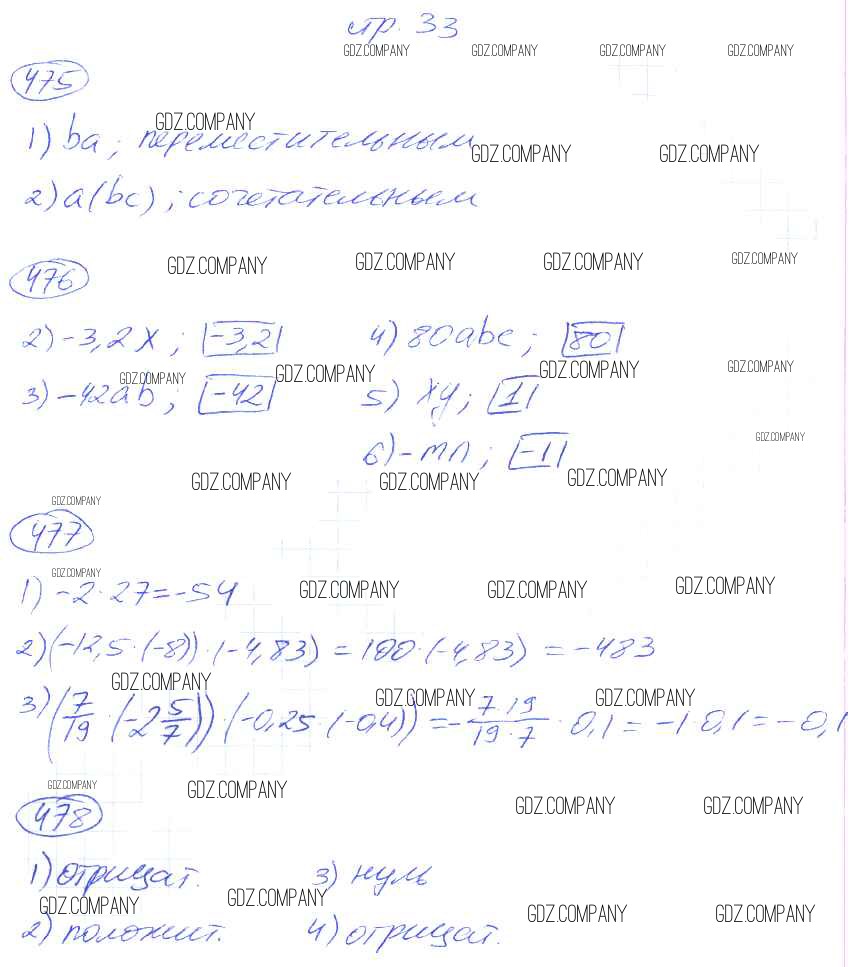 стр. 33
GDZ.COMPANY GDZ.COMPANY GDZ.COMPANY GDZ.COMPANY
475
GDZ.COMPANY
1) ba; переместительным
GDZ.COMPANY GDZ.COMPANY
2) a(bc); сочетательным
GDZ.COMPANY GDZ.COMPANY GDZ.COMPANY GDZ.COMPANY
476
2) -3,2x; -3,2 4) 80abc; 80
GDZ.COMPANY GDZ.COMPANY GDZ.COMPANY GDZ.COMPANY
3) -42ab; -42 5) xy; 1
GDZ.COMPANY
6) -mn; -1
GDZ.COMPANY GDZ.COMPANY GDZ.COMPANY
GDZ.COMPANY
477
GDZ.COMPANY
1) -2·27=-54
GDZ.COMPANY GDZ.COMPANY GDZ.COMPANY
2) (-12,5·(-8))·(-4,83) = 100·(-4,83) = -483
GDZ.COMPANY GDZ.COMPANY GDZ.COMPANY
3) (7/19·(-2 5/7))·(-0,25·(-0,4)) = -7·19/19·7·0,1 = -1·0,1 = -0,1
GDZ.COMPANY GDZ.COMPANY
478
GDZ.COMPANY GDZ.COMPANY
1) отрицат. 3) нуль
GDZ.COMPANY GDZ.COMPANY
2) положит. 4) отрицат.
GDZ.COMPANY GDZ.COMPANY